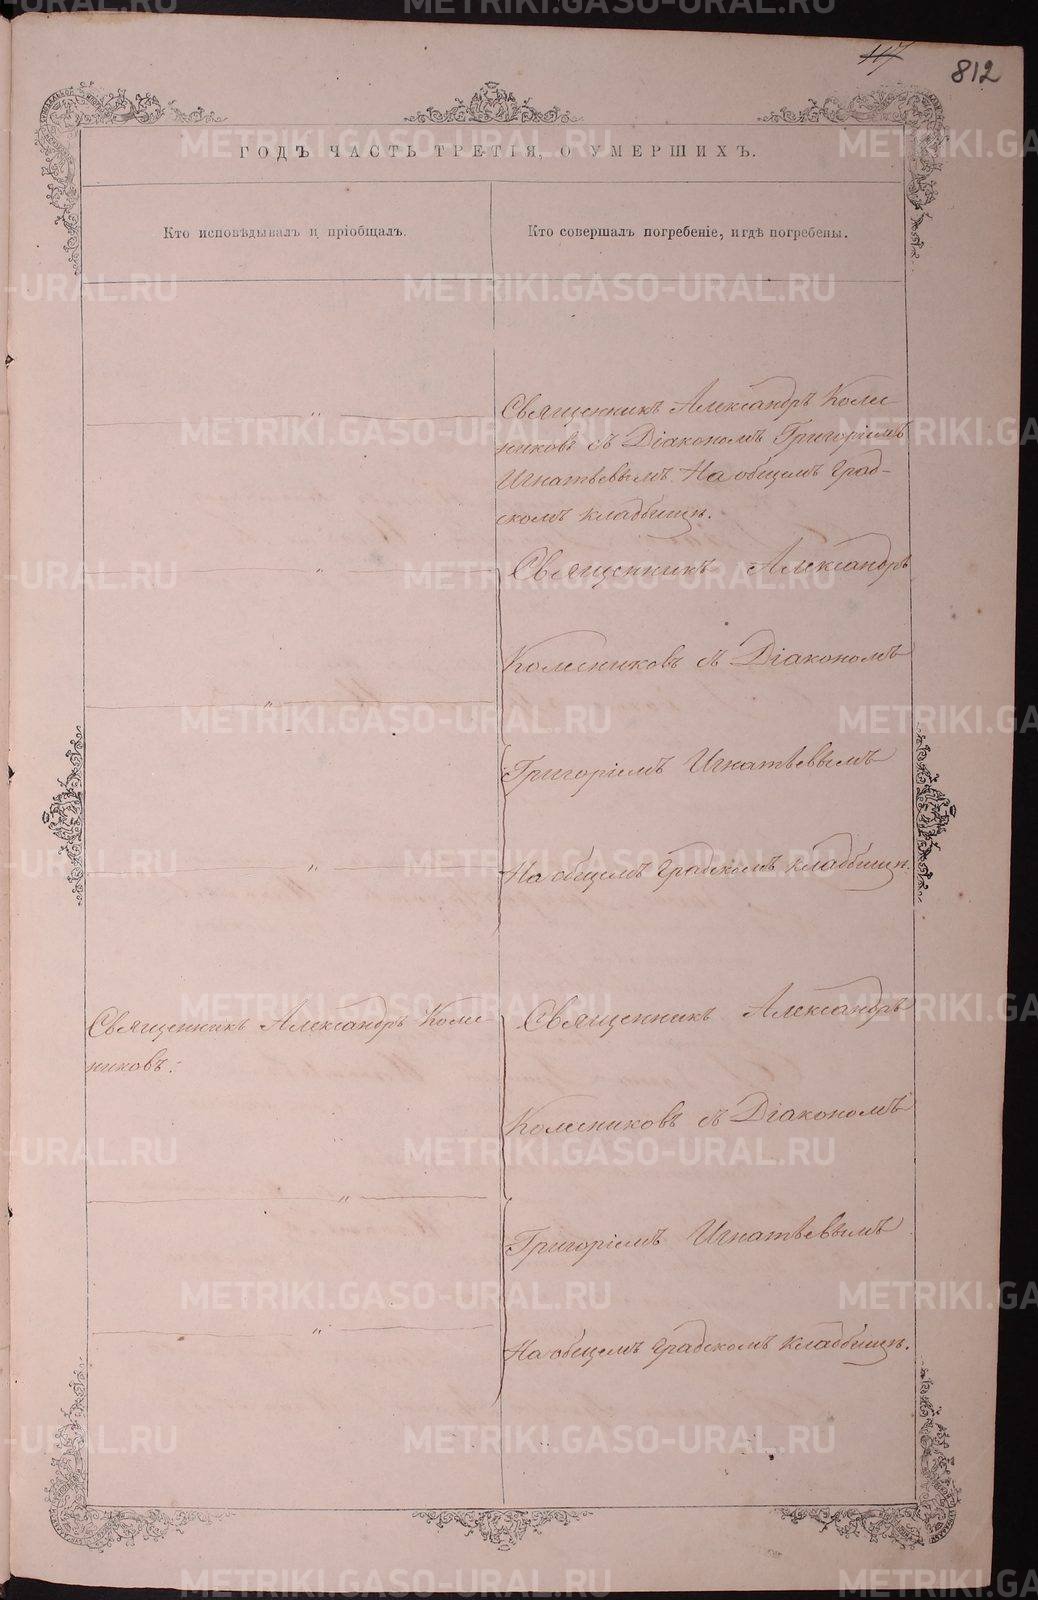 117
812
ГОДЪ ЧАСТЬ ТРЕТІЯ, О УМЕРШИХЪ.
Кто исповѣдывалъ и пріобщалъ.
Кто совершалъ погребеніе, и гдѣ погребены.
Священникъ Александръ Колес-
никовъ съ Діакономъ Григоріемъ
Игнатьевымъ. На общемъ Град-
скомъ кладбищѣ.
Священникъ Александръ
Колесниковъ съ Діакономъ
Григоріемъ Игнатьевымъ
На общемъ Градскомъ кладбищѣ.
Священникъ Александръ Колес-
никовъ.
Священникъ Александръ
Колесниковъ съ Діакономъ
Григоріемъ Игнатьевымъ
На общемъ Градскомъ кладбищѣ.
METRIKI.GASO-URAL.RU